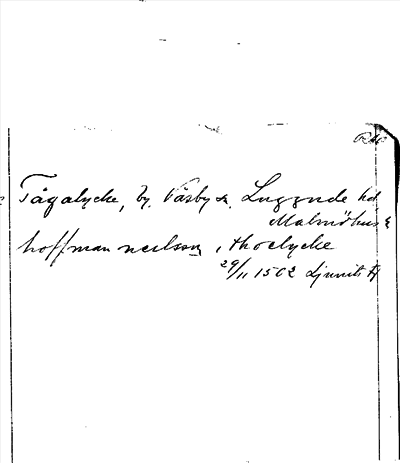 Tågalycke, by. Väsby s. Luggude hd.
Malmöhus
hoffman nielssøn i thoelycke
29/11 1502